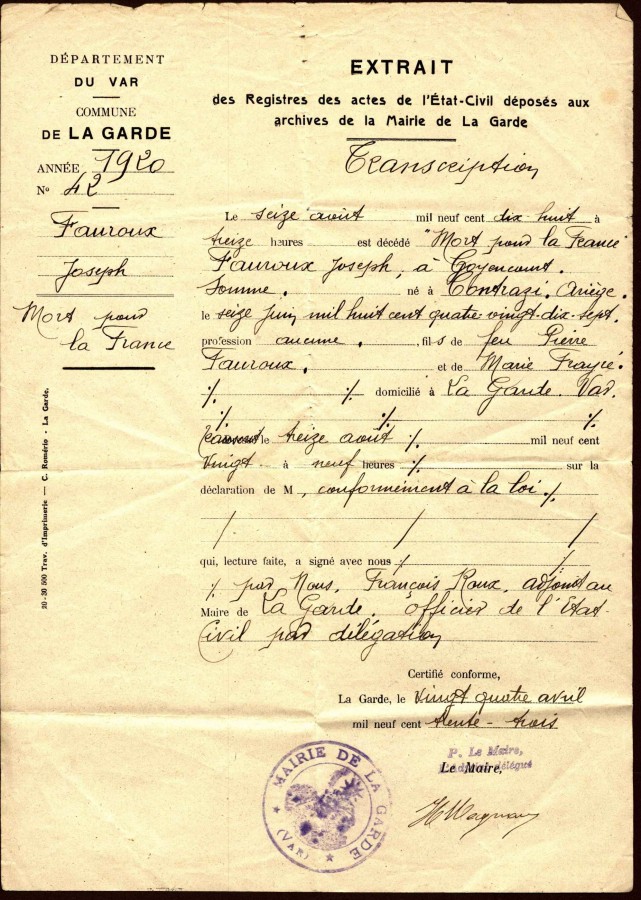 DÉPARTEMENT
DU VAR
COMMUNE
DE LA GARDE
ANNÉE 1920
N° 42
Fauroux
Joseph
Mort pour
la France
20-30 500 Trav. d'Imprimerie — C. Romério - La Garde.
EXTRAIT
des Registres des actes de l'État-Civil déposés aux
archives de la Mairie de La Garde
Transcription
Le seize août mil neuf cent dix huit à
treize heures est décédé "Mort pour la France"
Fauroux Joseph, à Goyencourt.
Somme. né à Contrazi. Ariège.
le seize juin mil huit cent quatre vingt-dix-sept.
profession aucune. fils de feu Pierre
Fauroux. et de Marie Frayré.
./. ./. domicilié à La Garde. Var.
./. ./. ./.
le treize août ./. mil neuf cent
vingt à neuf heures ./. sur la
déclaration de M, conformément à la loi ./.
/ / /
qui, lecture faite, a signé avec nous ./. ./.
./. par Nous, François Roux, adjoint au
Maire de La Garde. officier de l'État-
Civil par délégation
Certifié conforme,
La Garde, le vingt quatre avril
mil neuf cent trente-trois
P. Le Maire,
L'adjoint délégué
Le Maire,
MAIRIE DE LA GARDE
(VAR)